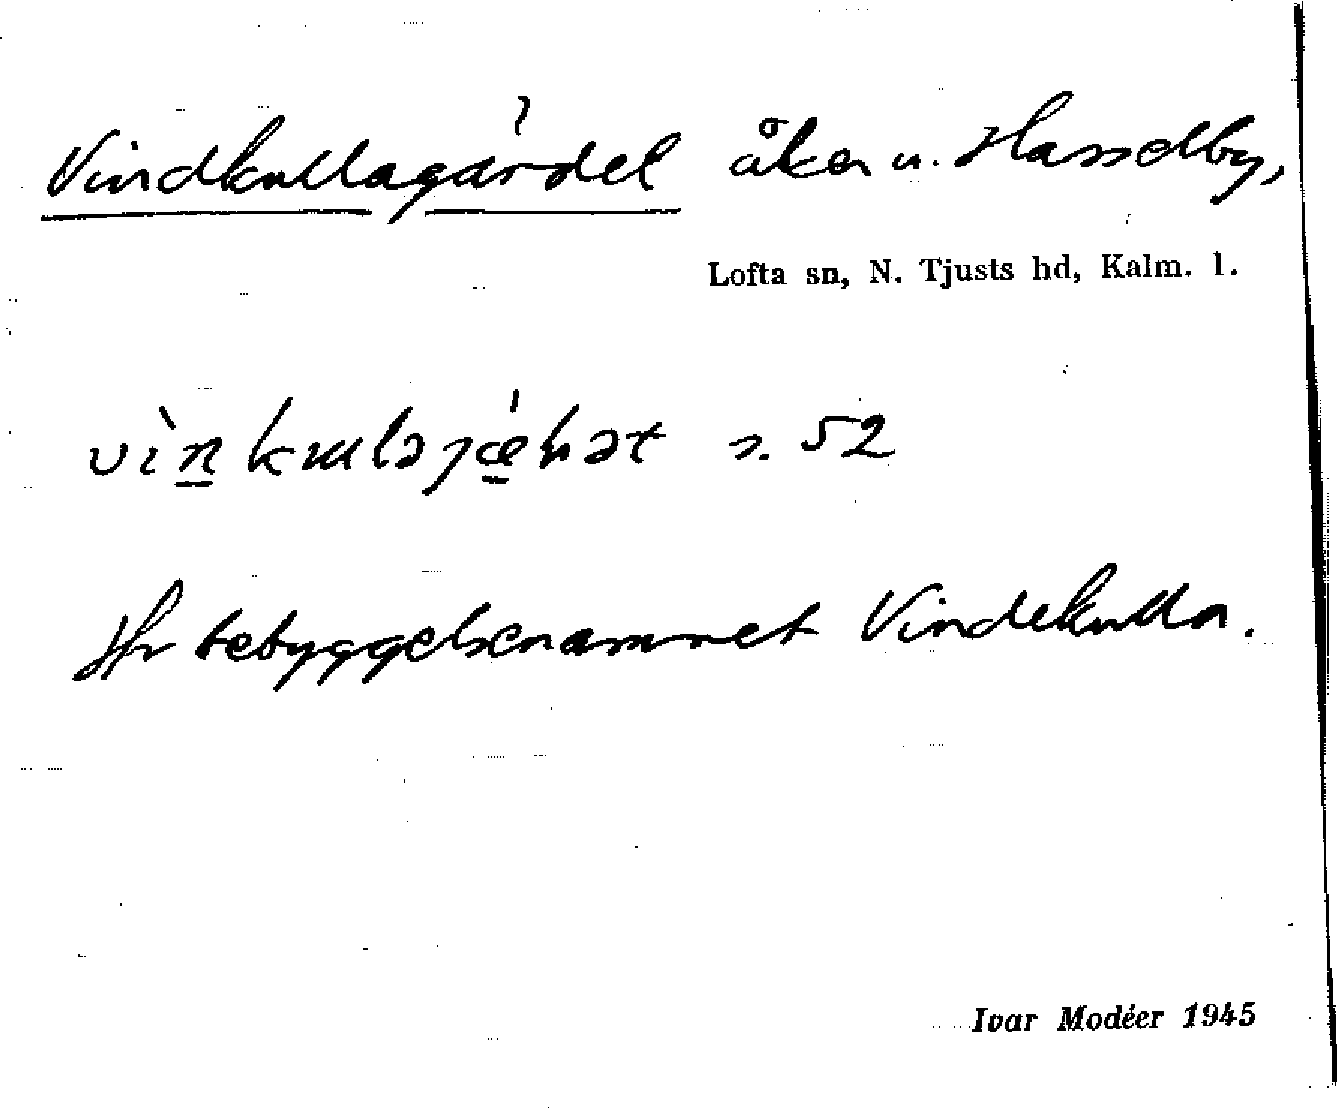 Vindkullagärdet åker u. Hasselby,
Lofta sn, N. Tjusts hd, Kalm. l.
s. 52
Jfr bebyggelsenamnet Vindekulla.
Ivar Modéer 1945